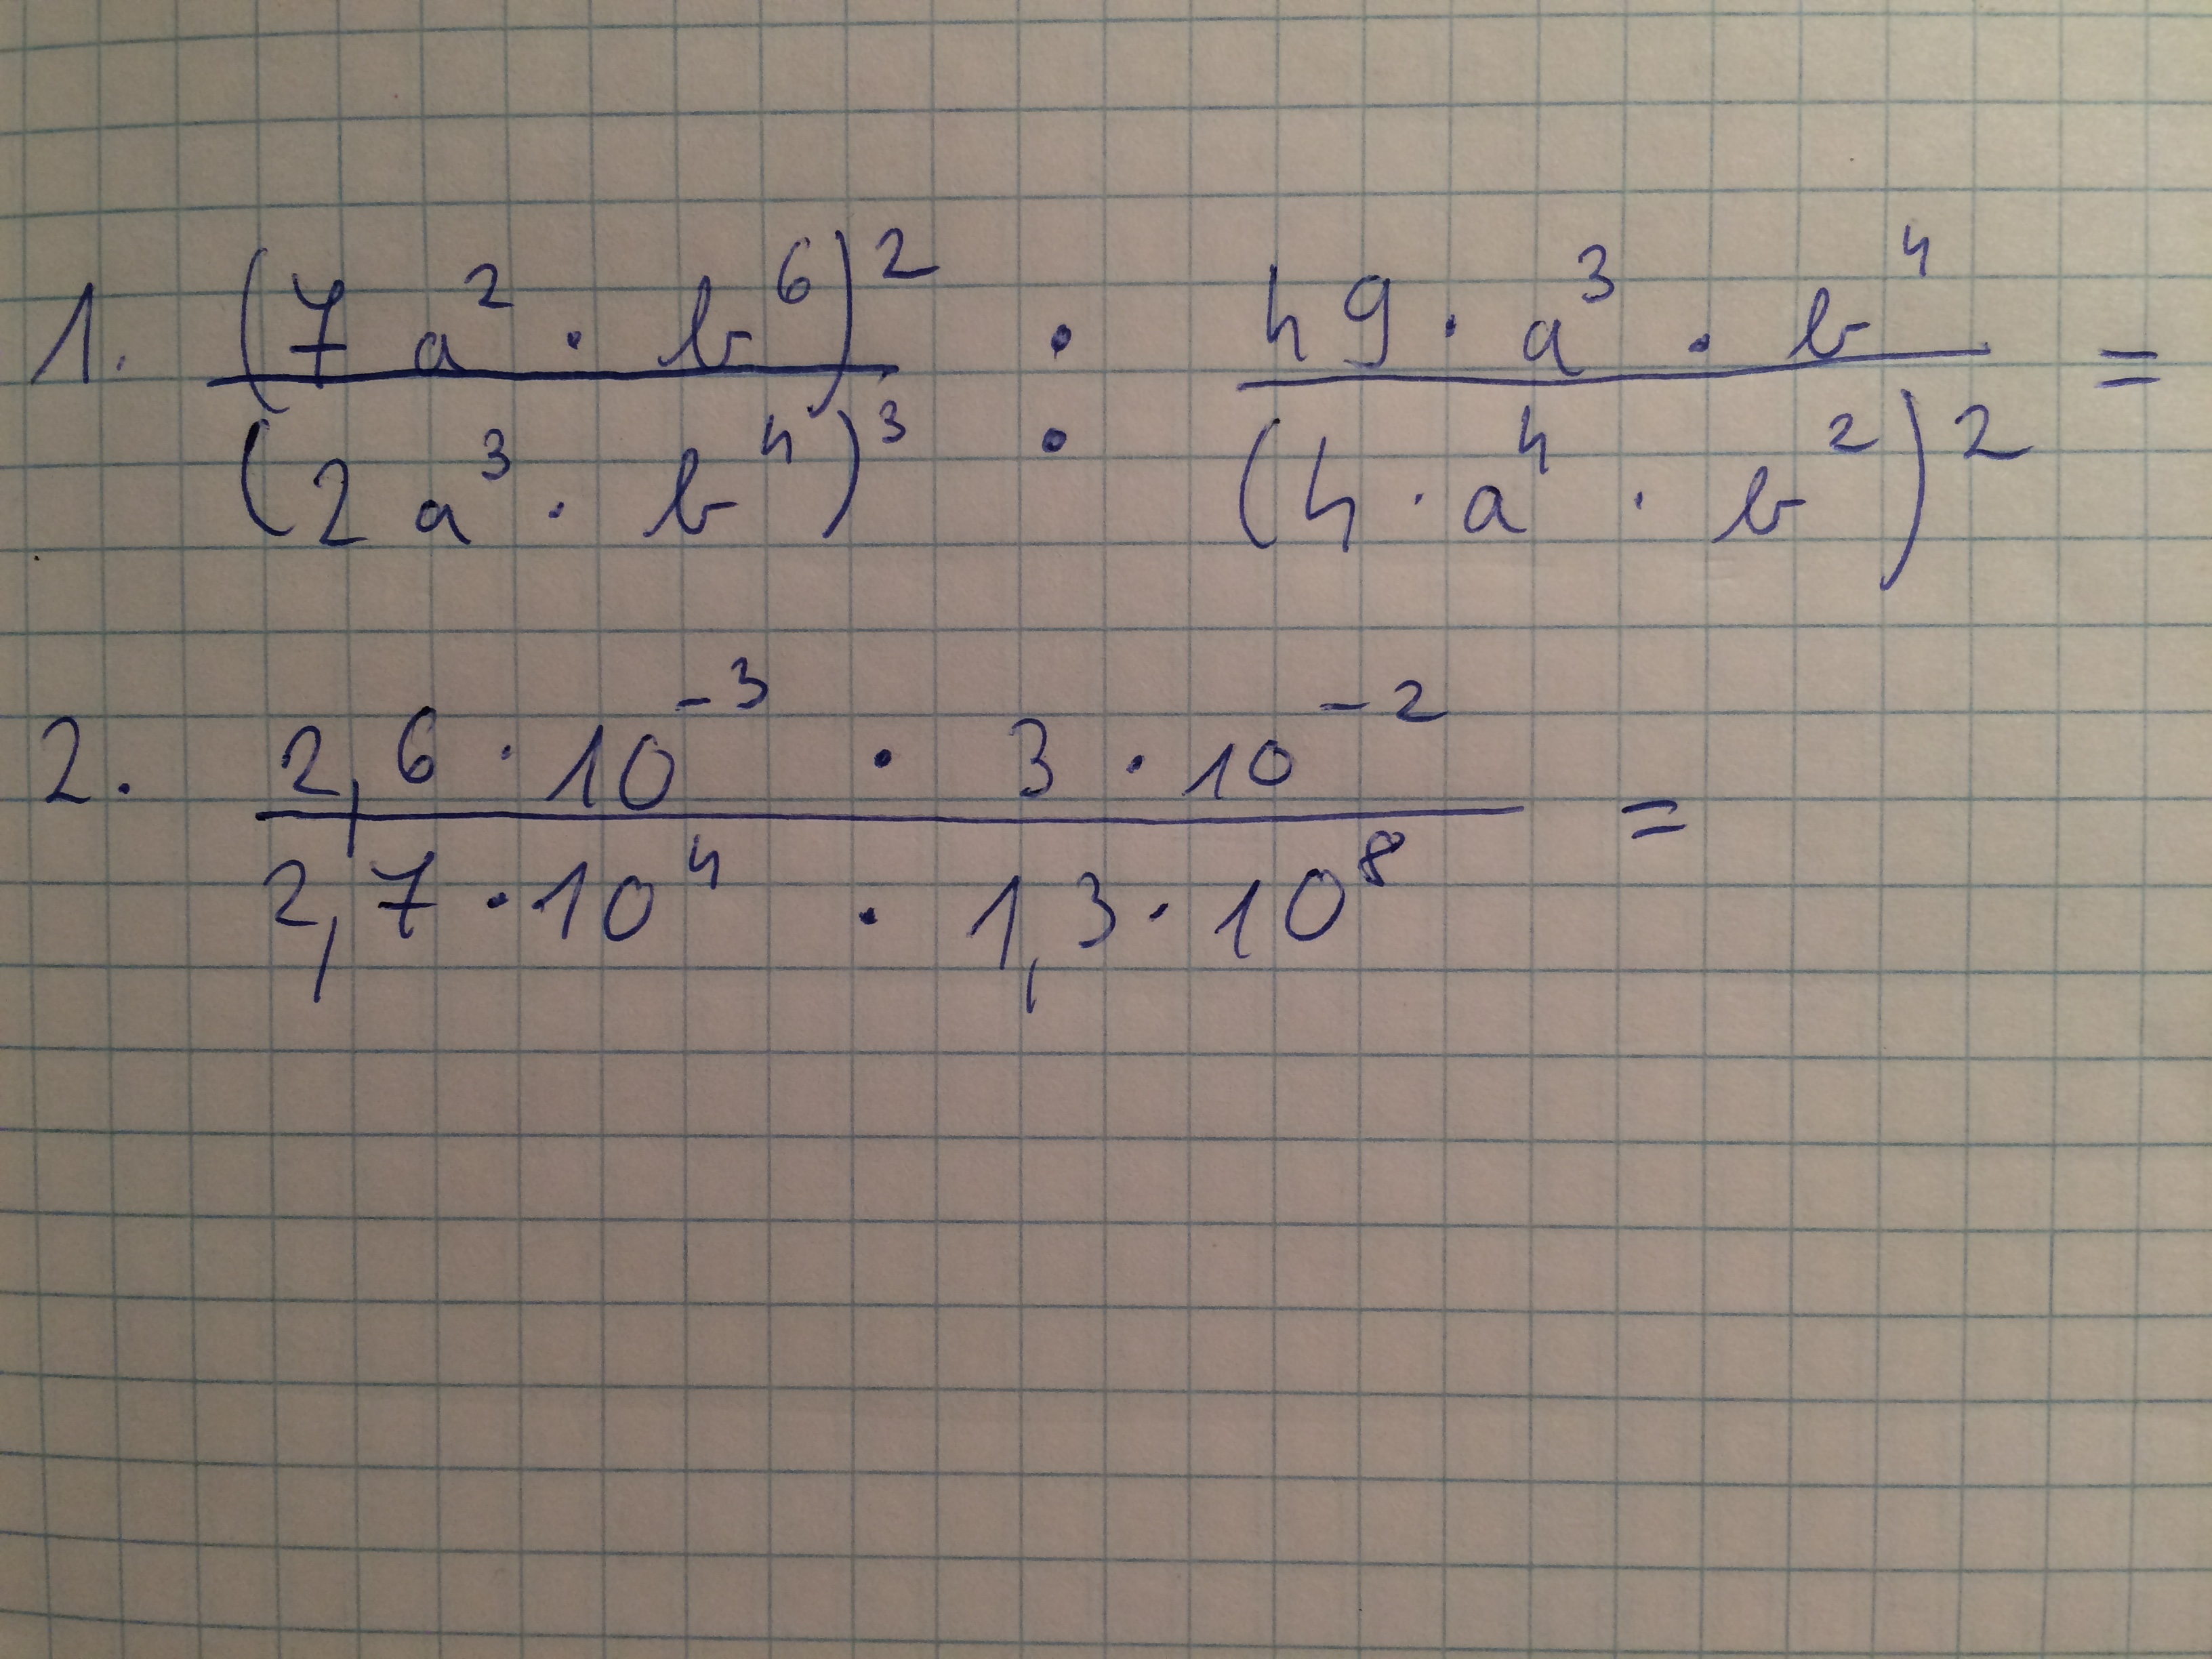 1. (7 a² · b⁶)² : 49 · a³ · b⁴ =
(2 a³ · b⁴)³ (4 · a⁴ · b²)²
2. 2,6 · 10⁻³ · 3 · 10⁻² =
2,7 · 10⁴ · 1,3 · 10⁸